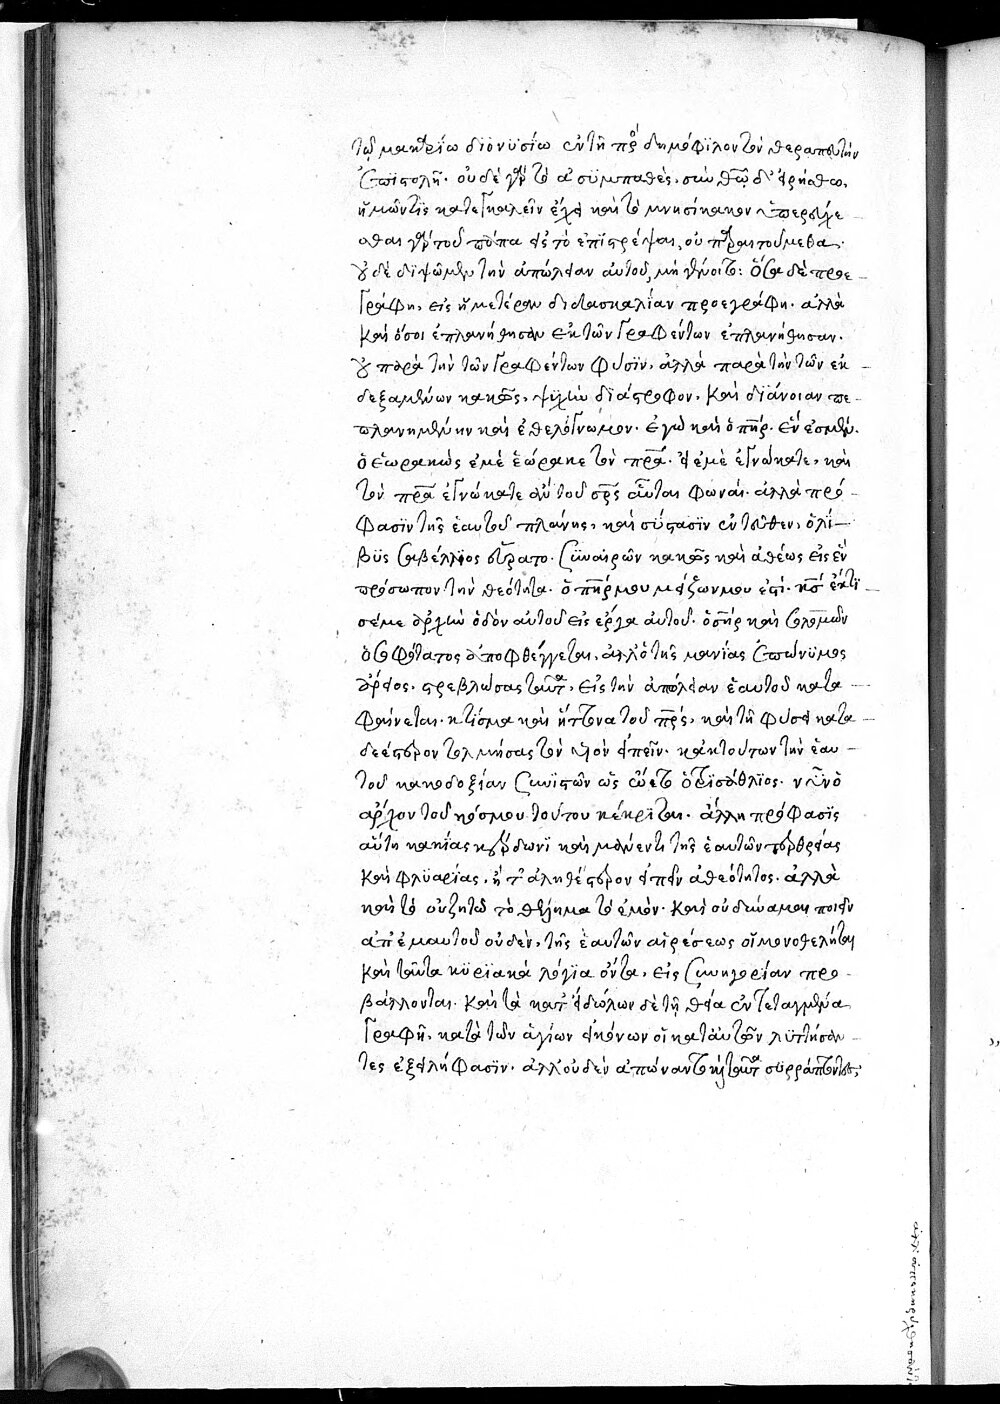 τῷ μακαρίῳ διονυσίῳ ἐν τῇ πρὸς δημόφιλον τὸν θεραπευτὴν
ἐπιστολῇ. οὐδὲ γὰρ τὸ ἀσϋμπαθὲς, σὺν θεῷ δ' εἰρήσθω,
ἡμῶν τὶς κατεγκαλεῖν ἔχει καὶ τὸ μνησίκακον
σθαι γὰρ τοῦ πάπα εἰς τὸ ἐπιστρέψαι, οὐ παραιτούμεθα.
οὐδὲ διψῶμεν τὴν ἀπώλειαν αὐτοῦ, μὴ γένοιτο: ὅσα δὲ προε-
γράφη, εἰς ἡμετέραν διδασκαλίαν προεγράφη. ἀλλὰ
καὶ ὅσοι ἐπλανήθησαν ἐκ τῶν γραφέντων ἐπλανήθησαν.
οὐ παρὰ τὴν τῶν γραφέντων φύσϊν, ἀλλὰ παρὰ τὴν τῶν ἐκ-
δεξαμένων κακῶς, ψυχὴν διάστροφον, καὶ διάνοιαν πε-
πλανημένην καὶ ἐθελόγνωμον. ἐγὼ καὶ ὁ πὴρ. ἕν ἐσμεν.
ὁ ἑωρακὼς ἐμὲ ἑώρακε τὸν πρα. εἰ ἐμὲ ἐγνώκατε, καὶ
τὸν πρα ἐγνώκατε αὐτοῦ σρς αὗται φωναί. ἀλλὰ πρό-
φασϊν τῆς ἑαυτοῦ πλάνης, καὶ σύστασϊν ἐντεῦθεν, ὁ λί-
βϋς σαβέλλϊος εὕρατο. συναιρῶν κακῶς καὶ ἀθέως εἰς ἓν
πρόσωπον τὴν θεότητα. ὁ πήρ μου μείζων μου ἐστί. κς ἔκτι-
σέ με ἀρχὴν ὁδῶν αὐτοῦ εἰς ἔργα αὐτοῦ. ὁ σὴρ καὶ σολομῶν
ὁ σοφώτατος ἀποφθέγγεται, ἀλλ' ὁ τῆς μανίας ἐπώνϋμος
ἄρειος. στρεβλώσας ταῦτα, εἰς τὴν ἀπώλειαν ἑαυτοῦ κατα-
φαίνεται. κτίσμα καὶ ἥττονα τοῦ πρς, καὶ τῇ φύσει κατα-
δεέστερον τολμήσας τὸν υἱὸν εἰπεῖν. κἀκ τούτων τὴν ἑαυ-
τοῦ κακοδοξίαν συνιστῶν ὡς ᾤετο ὁ τρϊσάθλϊος. νῦν ὁ
ἄρχων τοῦ κόσμου τούτου κέκριται. ἄλλη πρόφασϊς
αὕτη κακίας κέρδωνϊ καὶ μάνεντι τῆς ἑαυτῶν τερθρείας
καὶ φλϋαρίας, ἢ τὸ ἀληθέστερον εἰπεῖν ἀθεότητος. ἀλλὰ
καὶ τὸ οὐ ζητῶ τὸ θέλημα τὸ ἐμὸν. καὶ οὐ δύναμαι ποιεῖν
ἀπ' ἐμαυτοῦ οὐδὲν, τῆς ἑαυτῶν αἱρέσεως οἱ μονοθελῆται
καὶ ταῦτα κϋρϊακὰ λόγϊα ὄντα, εἰς συνηγορίαν προ-
βάλλονται. καὶ τὰ κατ' εἰδώλων δὲ τῇ θεία ἐντεταγμένα
γραφῇ, κατὰ τῶν ἁγίων εἰκόνων οἱ κατ' αὐτῶν λϋττήσαν-
τες ἐξειλήφασϊν. ἀλλ' οὐδὲν ἀπώναντο καὶ ταῦτα σϋρράπτοντες,